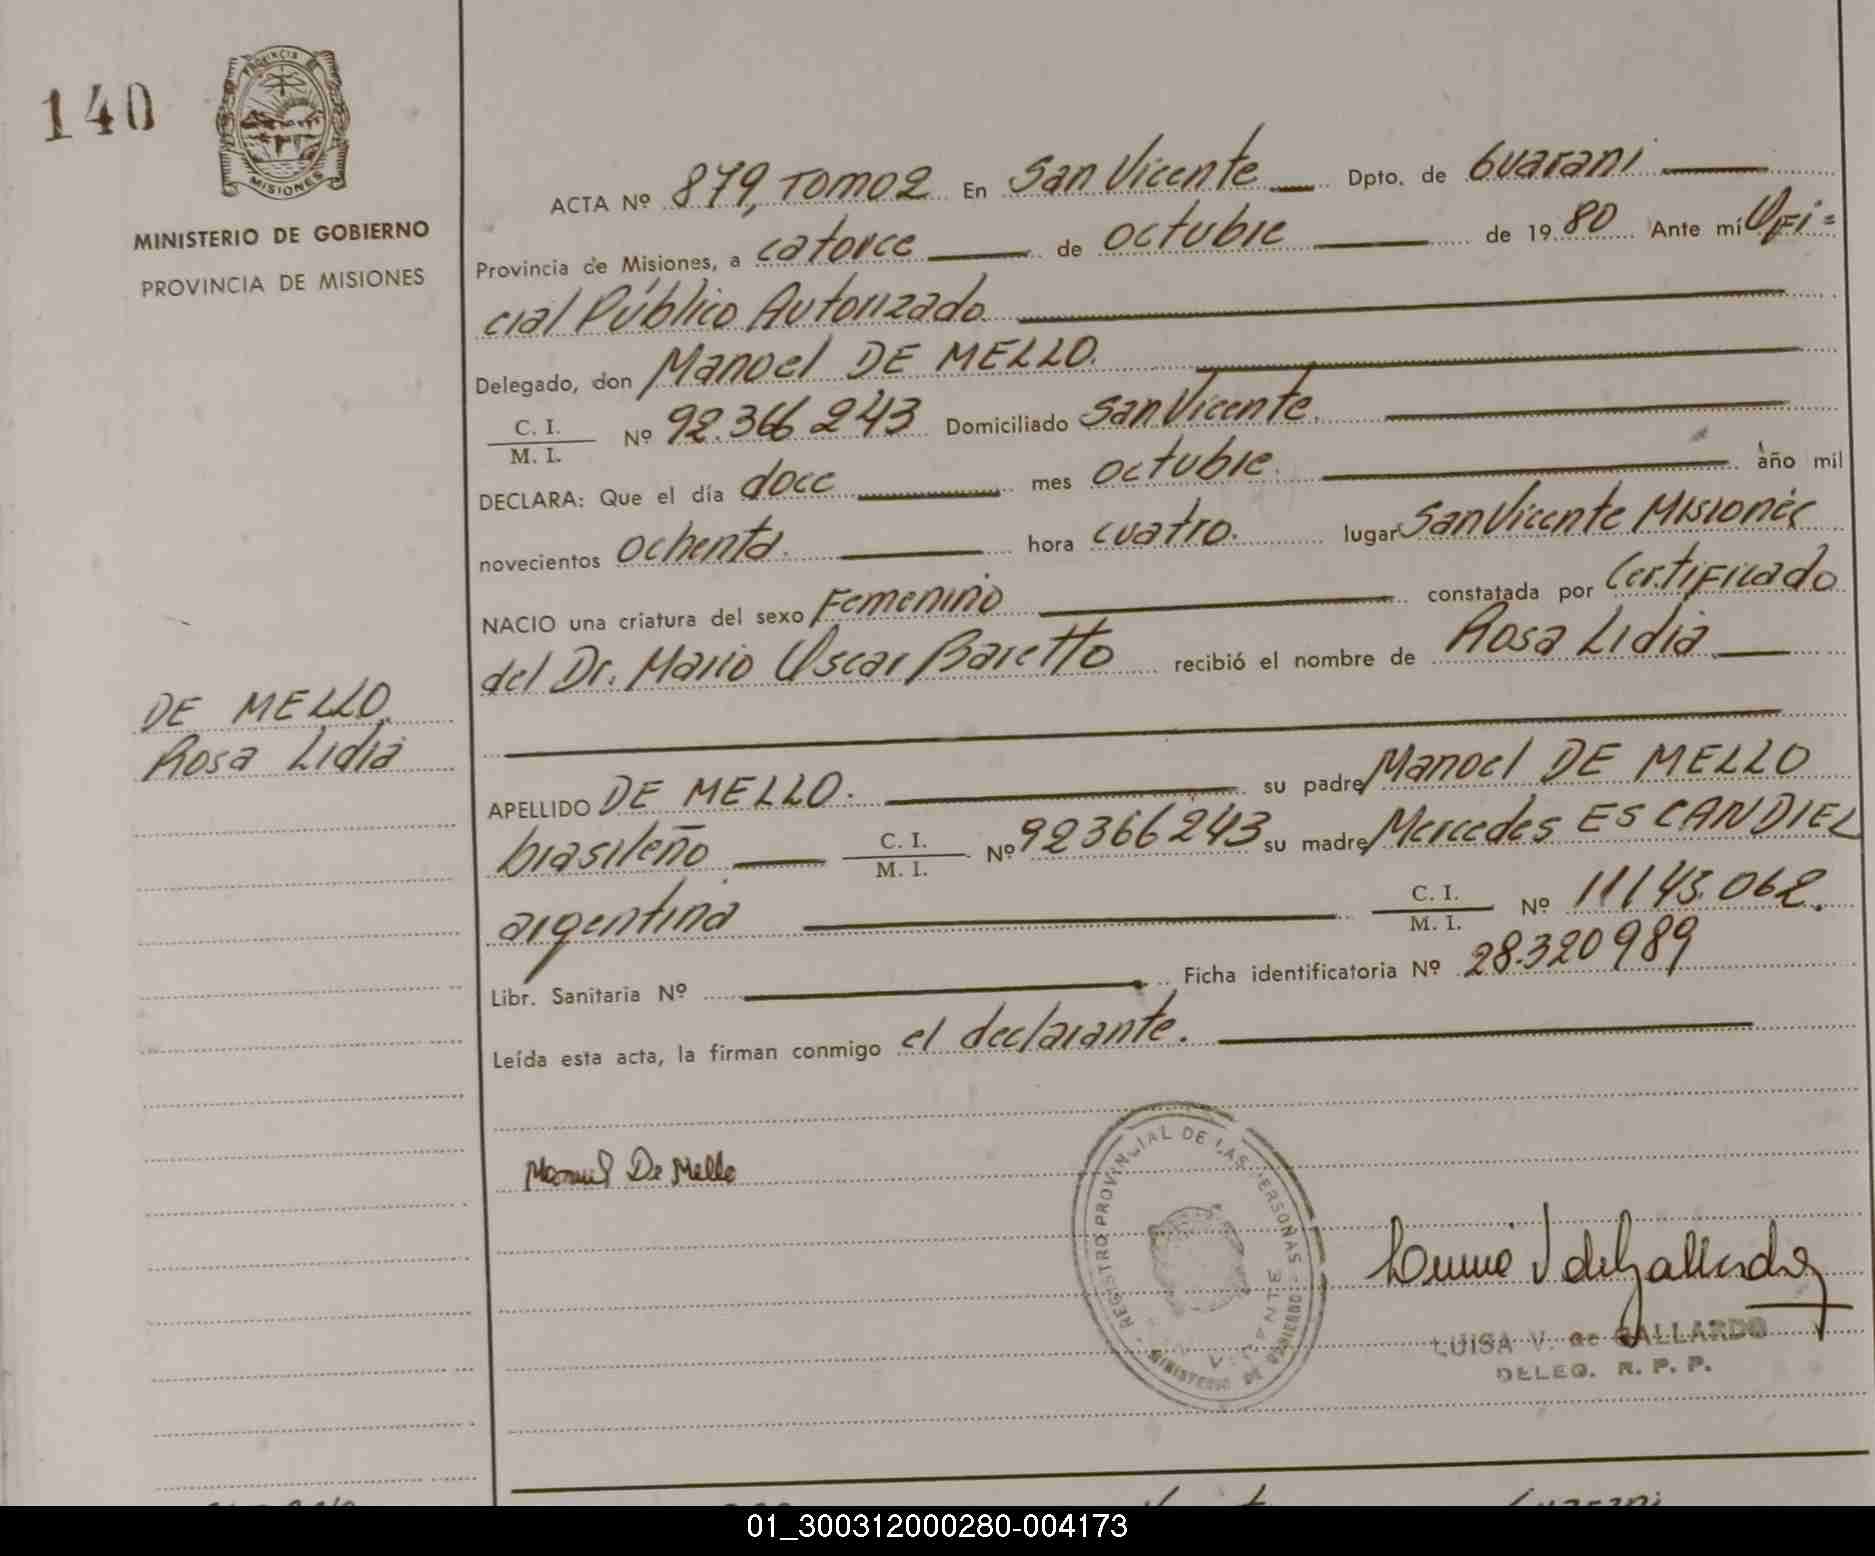 140
PROVINCIA DE
MISIONES
MINISTERIO DE GOBIERNO
PROVINCIA DE MISIONES
DE MELLO
Rosa Lidia
ACTA Nº 879, Tomo 2 En San Vicente Dpto. de Guarani
Provincia de Misiones, a catorce de octubre de 1980 Ante mí Ofi=
cial Público Autorizado.
Delegado, don Manoel DE MELLO.
C. I. / M. I. Nº 92.366243 Domiciliado San Vicente.
DECLARA: Que el día doce mes octubre. año mil
novecientos ochenta. hora cuatro. lugar San Vicente Misiones
NACIO una criatura del sexo Femenino constatada por Certificado
del Dr. Mario Oscar Baretto recibió el nombre de Rosa Lidia
APELLIDO DE MELLO. su padre Manoel DE MELLO
brasileño C. I. / M. I. Nº 92366243 su madre Mercedes ESCANDIEL
argentina C. I. / M. I. Nº 11143.062.
Libr. Sanitaria Nº Ficha identificatoria Nº 28.320989
Leída esta acta, la firman conmigo el declarante.
Manuel De Mello
REGISTRO PROVINCIAL DE LAS PERSONAS - MINISTERIO DE GOBIERNO
VICENTE
LUISA V. de GALLARDO
DELEG. R. P. P.
01_300312000280-004173